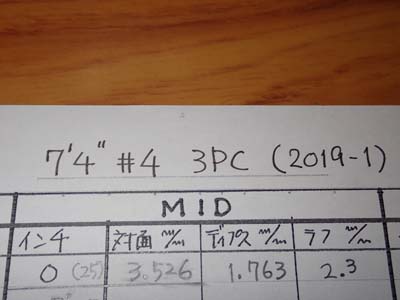 7'4" #4 3PC (2019-1)
MID
インチ 対面 m/m ディプス m/m ラフ m/m
0 (25) 3.526 1.763 2.3